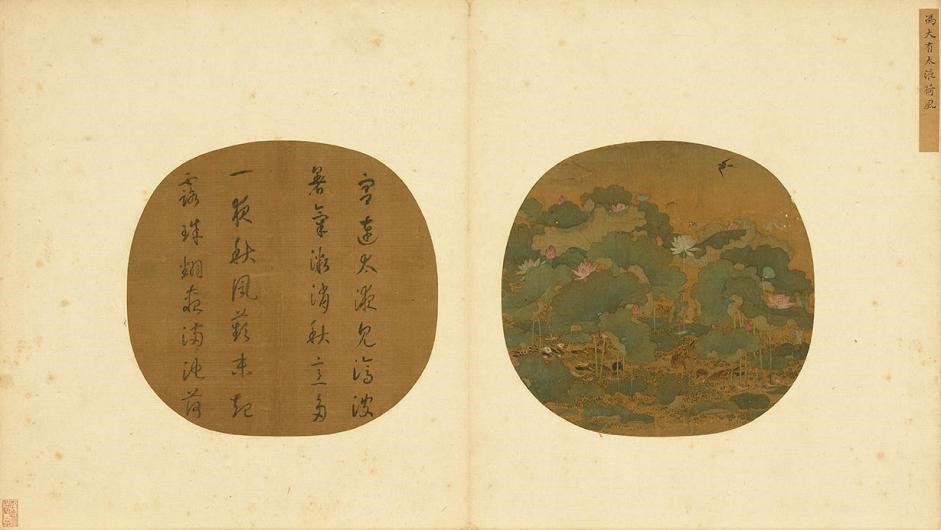 馮大有太液荷風
宮蓮太液見滄波
暑氣微消秋意多
一夜秋風蘋末起
露珠翻盡滿池荷